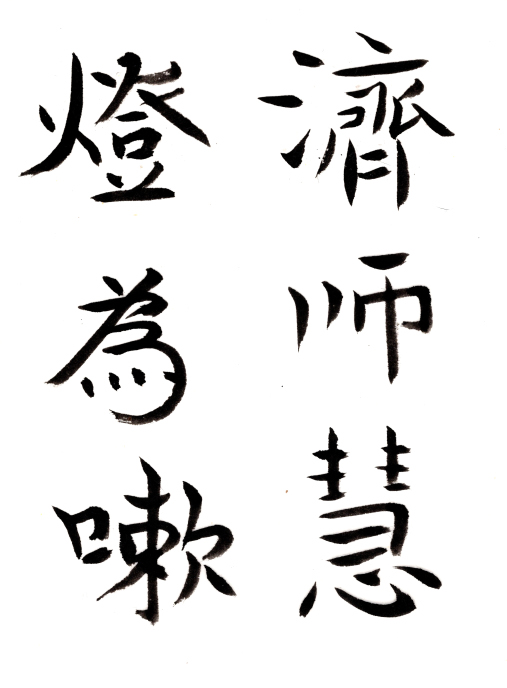 濟师慧
燈為嗽